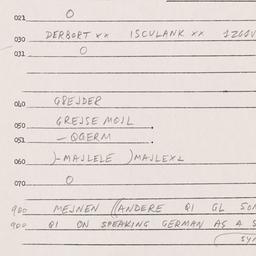 021 O
030 DERBORT xx ISCULANK xx
031 O
040 GREJDER
050 GREJSE MOJL
051 - QGERM
060 )-MAJLELE )MAJLEXL
070 O
900 MEJNEN ((ANDERE QI GL
900 QI ON SPEAKING GERMAN AS A